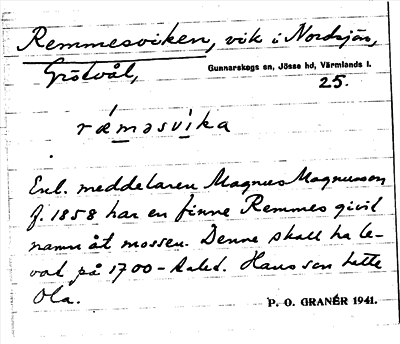 Remmesviken, vik i Nordsjön,
Grötvål, Gunnarskogs sn, Jösse hd, Värmlands l.
25.
rǽməsvìka
Enl. meddelaren Magnus Magnusson
f. 1858 har en finne Remmes givit
namn åt mossen. Denne skall ha le-
vat på 1700-talet. Hans son hette
Ola.
P. O. GRANÉR 1941.